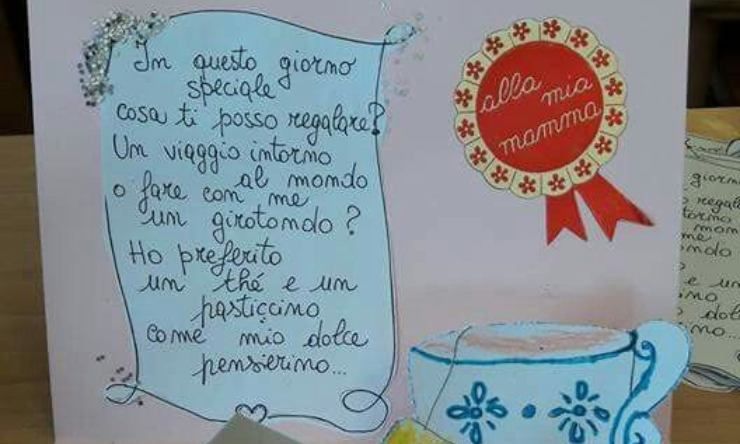 In questo giorno
speciale
cosa ti posso regalare?
Un viaggio intorno
al mondo
o fare con me
un girotondo?
Ho preferito
un thé e un
pasticcino
come mio dolce
pensierino...
alla mia
mamma
giorn
regal
torno
mon
me
ondo
e un
ino
dol
no...